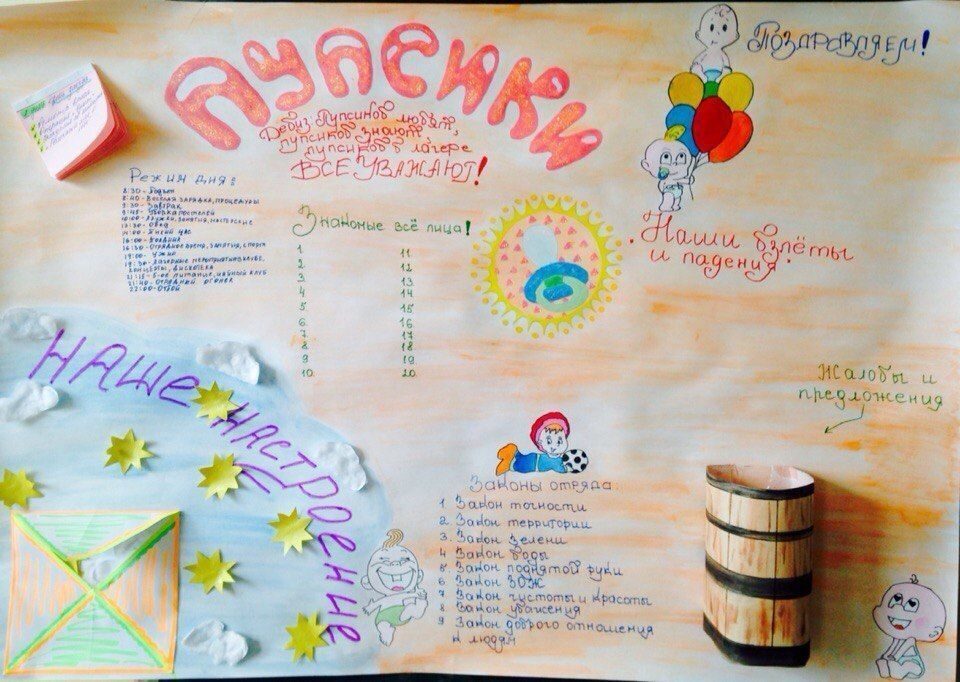 Пупсики
Поздравляем!
Девиз Пупсиков любят,
пупсиков знают,
пупсиков в лагере
ВСЕ УВАЖАЮТ!
Режим дня:
8:30 - Подъём
8:40 - Веселая зарядка, процедуры
9:30 - Завтрак
9:45 - Уборка постелей
10:00 - Кружки, занятия, мастерские
13:30 - Обед
14:00 - Тихий час
16:00 - Полдник
16:30 - Отрядное время, занятия, спорт
19:00 - Ужин
19:30 - Лагерные мероприятия в клубе,
концерты, дискотека
21:15 - 5-ое питание, чайный клуб
21:40 - Отрядный огонек
22:00 - Отбой
Знакомые всё лица!
1
2
3
4
5
6
7
8
9
10
11
12
13
14
15
16
17
18
19
20
Наши взлёты
и падения
Наше настроение
Жалобы и
предложения
Законы отряда:
1 Закон точности
2 Закон территории
3 Закон зелени
4 Закон воды
5 Закон поднятой руки
6 Закон ЗОЖ
7 Закон чистоты и красоты
8 Закон уважения
9 Закон доброго отношения
к людям